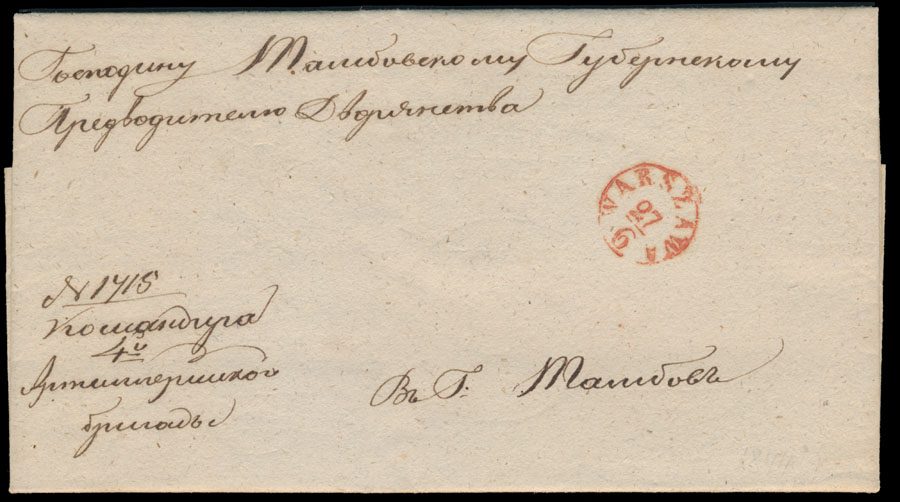 Господину Тамбовскому Губернскому
Предводителю Дворянства
WARSZAWA
№ 1715
Командира
4й
Артиллерийской
бригады
Въ Г. Тамбовъ